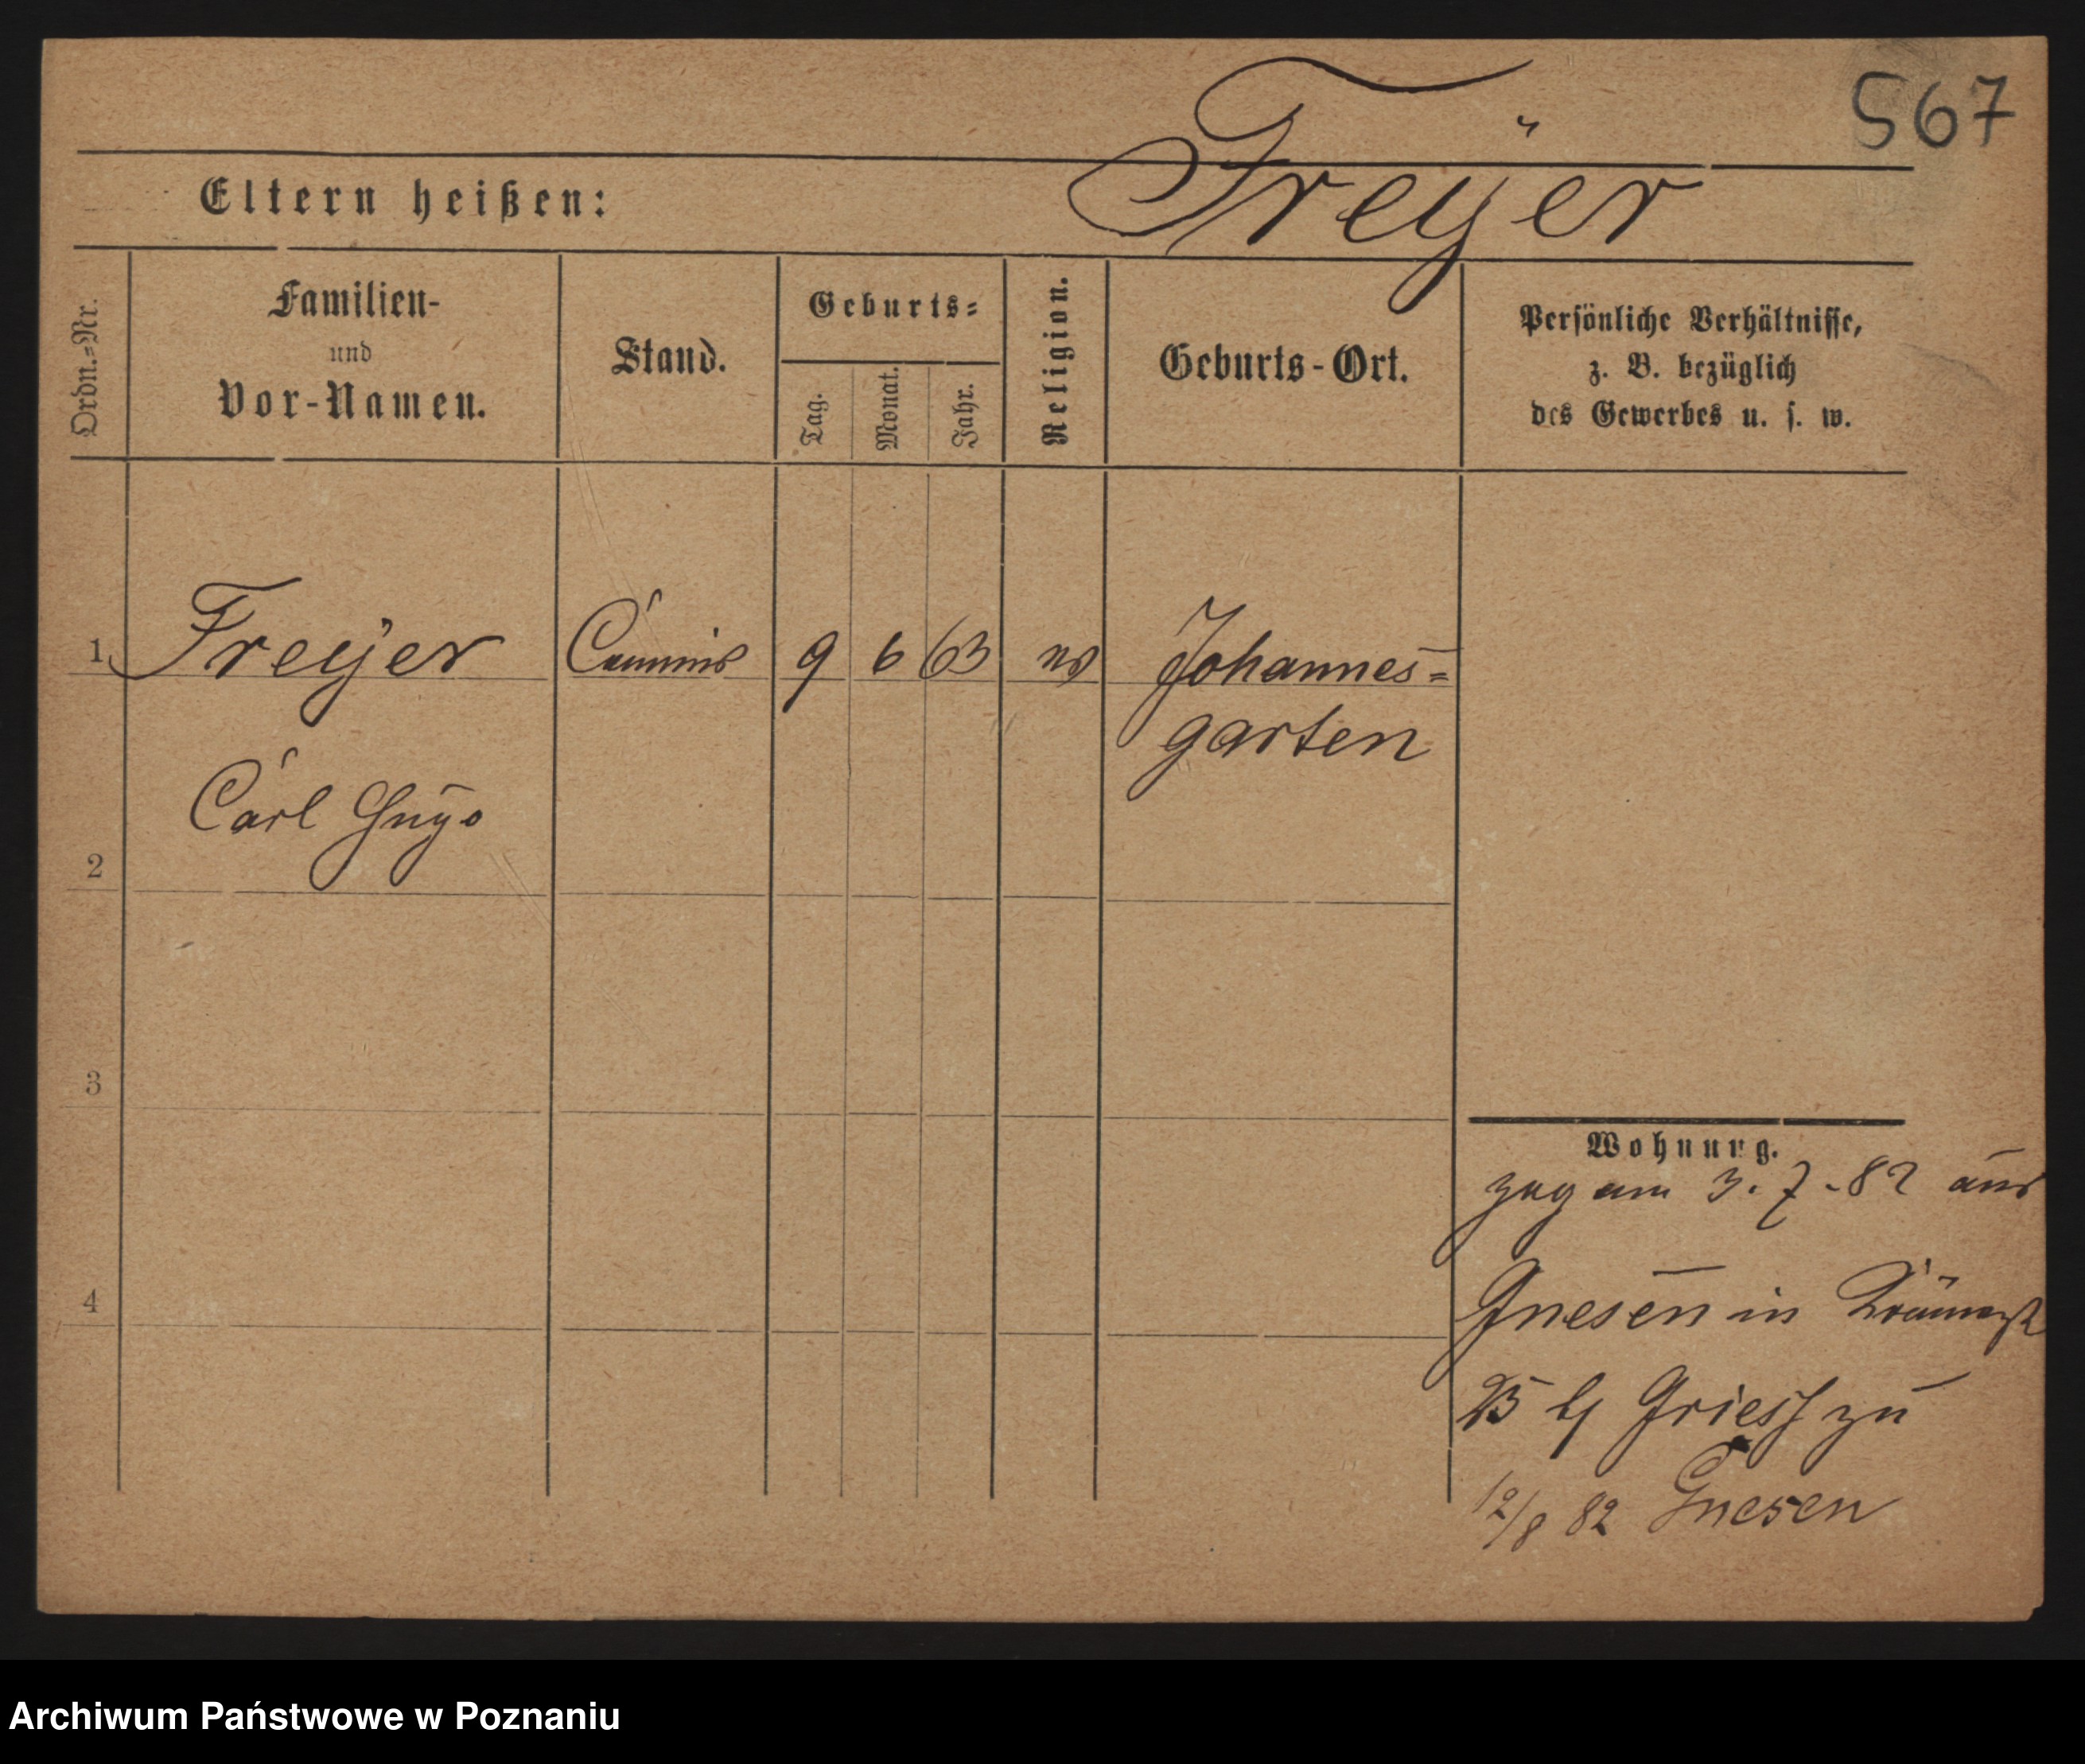 567
Freÿer
Eltern heißen:
Ordn.=Nr.
Familien-
und
Vor-Namen.
Stand.
Geburts=
Tag.
Monat.
Jahr.
Religion.
Geburts-Ort.
Persönliche Verhältnisse,
z. B. bezüglich
des Gewerbes u. s. w.
1 Freyer Commis 9 6 63 ev Johannes=
garten
Carl Hugo
2
3
4
Wohnung.
zog am 3.7.82 aus
Gnesen in
25 bei zu
12/8 82 Gnesen
Archiwum Państwowe w Poznaniu